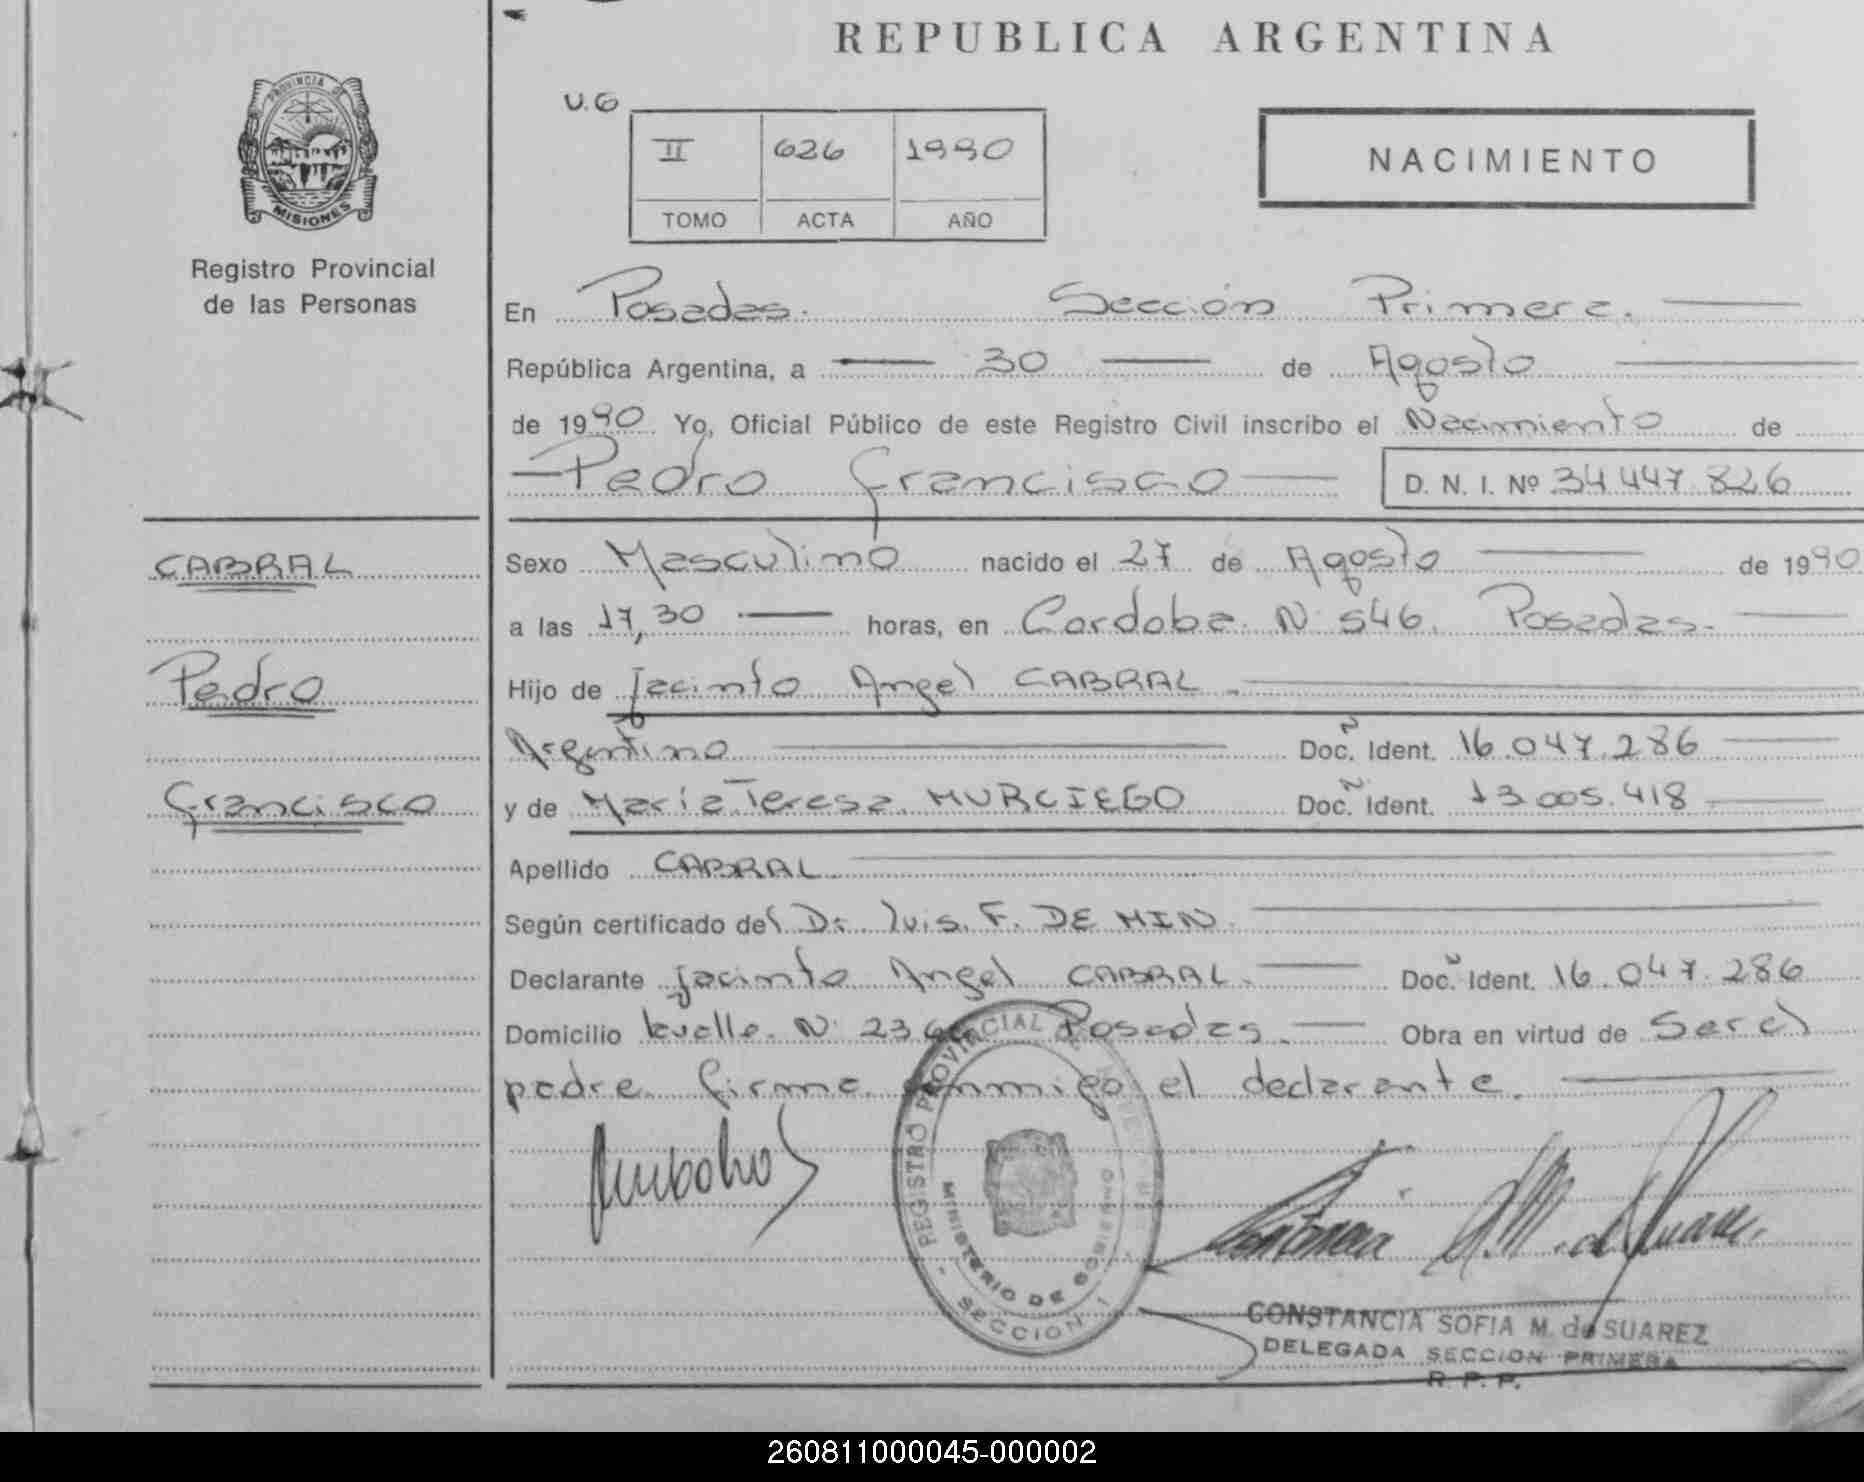 REPUBLICA ARGENTINA
PROVINCIA DE
MISIONES
Registro Provincial
de las Personas
U.G
II 626 1990
TOMO ACTA AÑO
NACIMIENTO
En Posadas. Sección Primera.
República Argentina, a 30 de Agosto
de 1990 Yo, Oficial Público de este Registro Civil inscribo el Nacimiento de
Pedro Francisco D. N. I. Nº 34 447 826
CABRAL
Pedro
Francisco
Sexo Masculino nacido el 27 de Agosto de 1990
a las 17,30 horas, en Cordoba. N. 546. Posadas.
Hijo de Jacinto Angel CABRAL
Argentino Doc. Ident. 16.047.286
y de María Teresa MURCIEGO Doc. Ident. 13.005.418
Apellido CABRAL
Según certificado del Dr. Luis. F. DE MIN.
Declarante Jacinto Angel CABRAL. Doc. Ident. 16.047.286
Domicilio N. Posadas. Obra en virtud de Ser el
padre. firma conmigo el declarante.
REGISTRO PROVINCIAL DE
MINISTERIO DE GOBIERNO
SECCION 1
CONSTANCIA SOFIA M. de SUAREZ
DELEGADA SECCION PRIMERA
R. P. P.
260811000045-000002